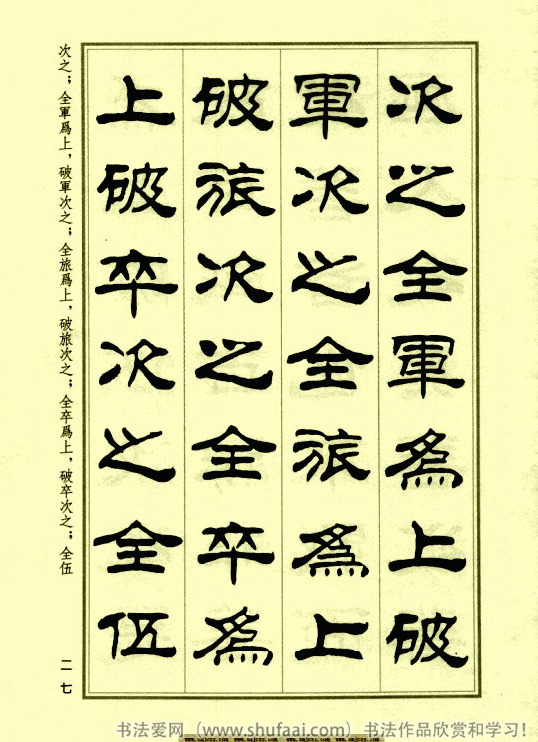 次之全軍爲上破
軍次之全旅爲上
破旅次之全卒爲
上破卒次之全伍
次之；全軍爲上，破軍次之；全旅爲上，破旅次之；全卒爲上，破卒次之；全伍
二七
书法爱网（www.shufaai.com）书法作品欣赏和学习！